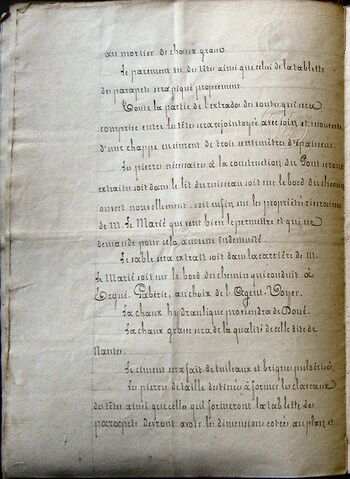 au mortier de chaux grasse.
Le parement vu des têtes ainsi que celui de la tablette
des parapets sera piqué proprement.
Toute la partie de l'extrados des voutes qui sera
comprise entre les têtes sera rejointoyée avec soin et recouverte
d'une chappe en ciment de trois centimètres d'épaisseur.
Les pierres nécessaires à la construction du Pont seront
extraites soit dans le lit du ruisseau soit sur le bord du chemin
ouvert nouvellement, soit enfin sur les propriétés riveraines
de M. Le Marié qui veut bien le permettre et qui ne
demande pour cela aucune indemnité.
Le sable sera extrait soit dans la carrière de M.
Le Marié soit sur le bord du chemin qui conduit à
Ergué-Gabéric, au choix de l'Agent-Voyer.
La chaux hydraulique proviendra de Doué.
La chaux grasse sera de la qualité de celle dite de
Nantes.
Le ciment sera fait de tuileaux et briques pulvérisés.
Les pierres de taille destinées à former les claveaux
des têtes ainsi que celles qui formeront la tablette des
parapets devront avoir les dimensions cotées au plan et